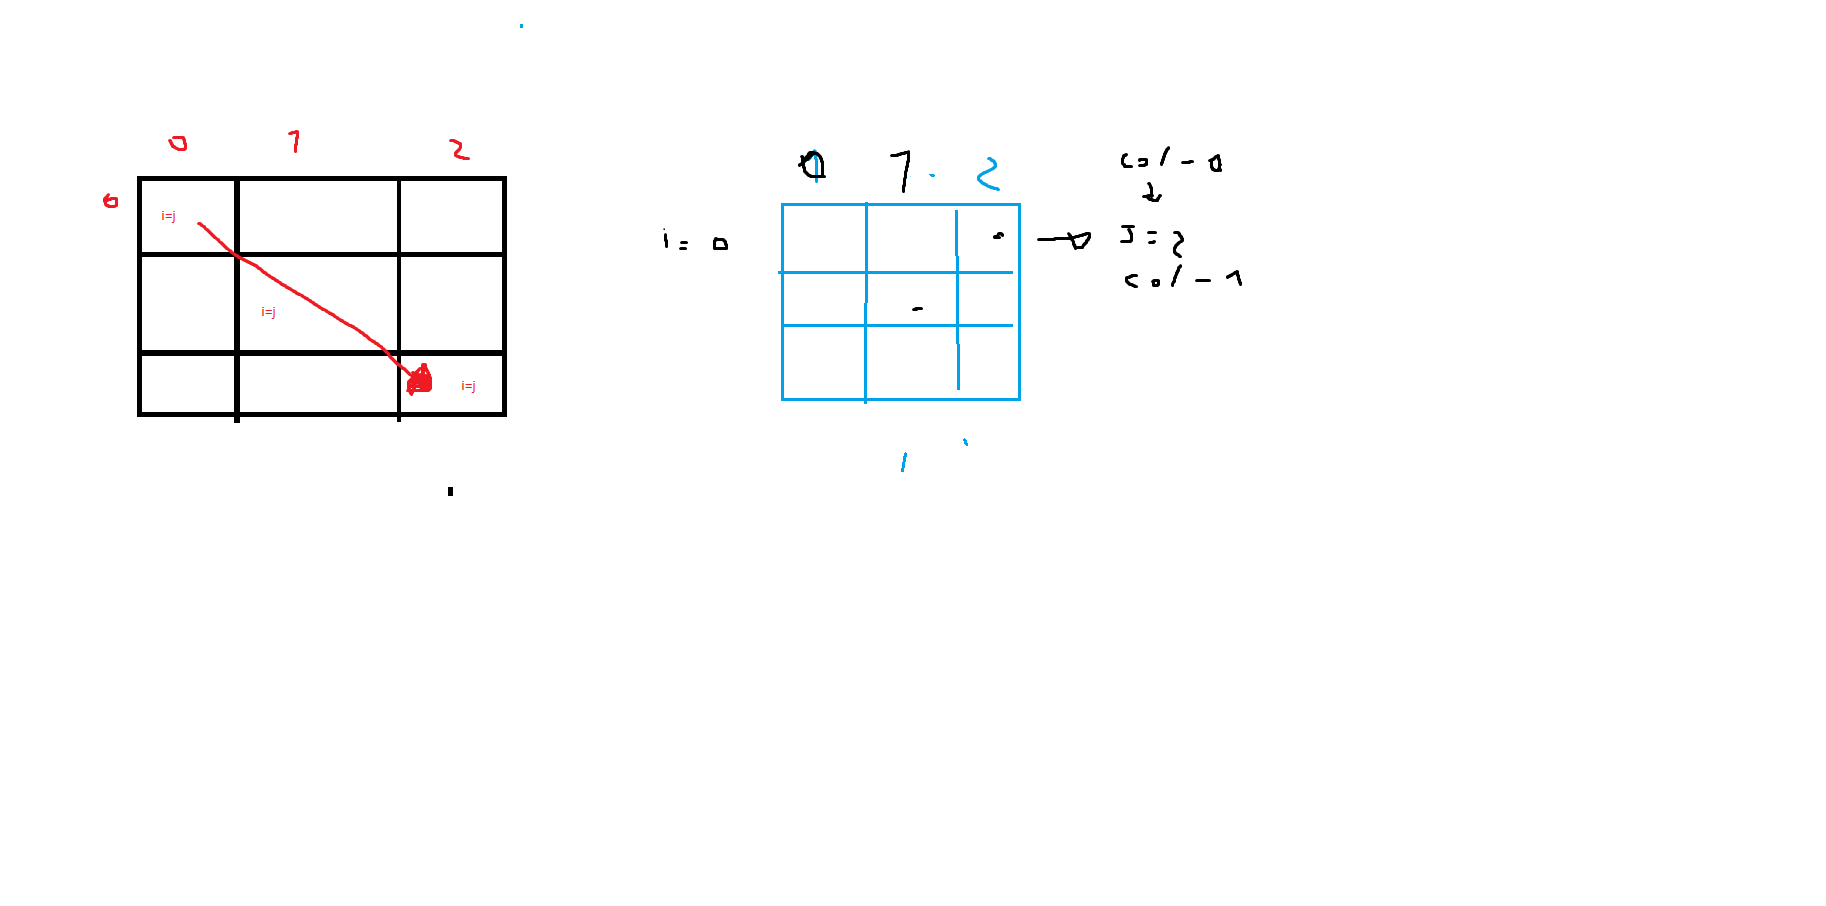 0 1 2
0
i=j
i=j
i=j
0 1 2
i = 0
col - 0
J = 2
col - 1